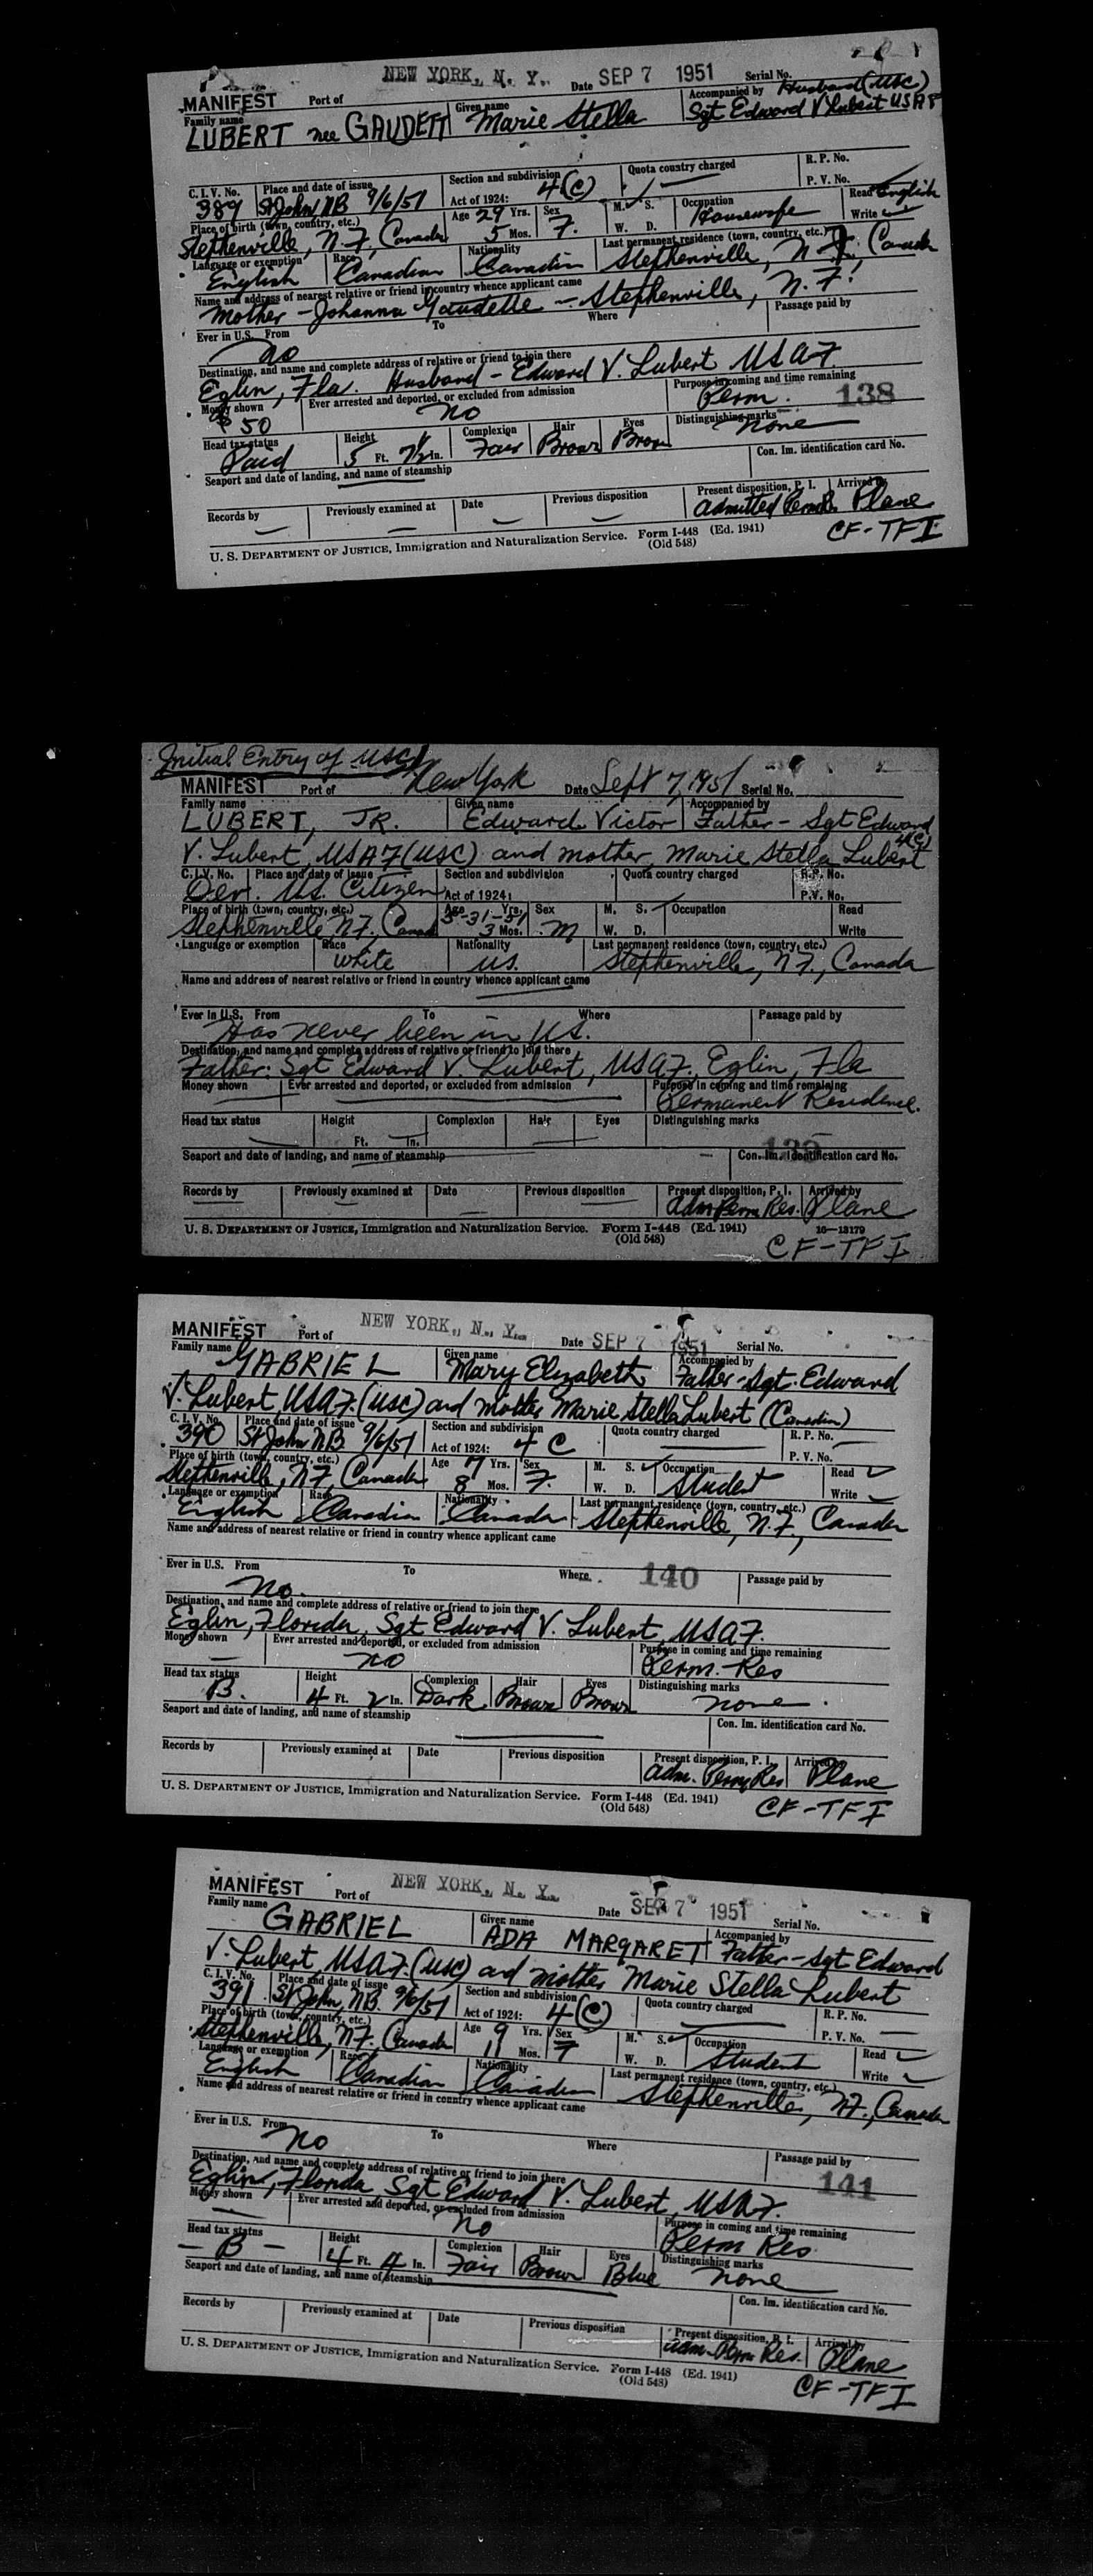 NEW YORK, N. Y. SEP 7 1951
MANIFEST Port of Date Serial No.
Family name Given name Accompanied by Husband (USC)
LUBERT nee GAUDETT Marie Stella Sgt Edward V Lubert USAF
C. I. V. No. Place and date of issue Section and subdivision Quota country charged R. P. No.
389 St John NB 9/6/51 Act of 1924: 4(C) P. V. No.
Place of birth (town, country, etc.) Age 29 Yrs. Sex M. S. Occupation Read English
Stephenville, N.F., Canada 5 Mos. F. W. D. Housewife Write
Language or exemption Race Nationality Last permanent residence (town, country, etc.)
English Canadian Canadian Stephenville, N.F. Canada
Name and address of nearest relative or friend in country whence applicant came
Mother - Johanna Gaudette - Stephenville, N.F.
Ever in U.S. From To Where Passage paid by
no
Destination, and name and complete address of relative or friend to join there
Eglin, Fla. Husband - Edward V. Lubert USAF.
Money shown Ever arrested and deported, or excluded from admission Purpose in coming and time remaining
$50 no Perm. 138
Head tax status Height Complexion Hair Eyes Distinguishing marks
Paid 5 Ft. 7½ In. Fair Brown Brown none
Seaport and date of landing, and name of steamship Con. Im. identification card No.
Records by Previously examined at Date Previous disposition Present disposition, P. I. Arrived by
admitted Plane
U. S. DEPARTMENT OF JUSTICE, Immigration and Naturalization Service. Form I-448 (Ed. 1941)
(Old 548) CF-TFI
Initial Entry of USC
MANIFEST Port of New York Date Sept 7, 1951 Serial No.
Family name Given name Accompanied by
LUBERT, JR. Edward Victor Father - Sgt Edward
V. Lubert, USAF (USC) and mother, Marie Stella Lubert 4(C)
C. I. V. No. Place and date of issue Section and subdivision Quota country charged R. P. No.
Der. U.S. Citizen Act of 1924: P. V. No.
Place of birth (town, country, etc.) Age Yrs. Sex M. S. Occupation Read
Stephenville, N.F. Canada 5-31-51 3 Mos. M W. D. Write
Language or exemption Race Nationality Last permanent residence (town, country, etc.)
White US. Stephenville, N.F., Canada
Name and address of nearest relative or friend in country whence applicant came
Ever in U.S. From To Where Passage paid by
Has never been in US.
Destination, and name and complete address of relative or friend to join there
Father: Sgt Edward V. Lubert, USAF., Eglin, Fla
Money shown Ever arrested and deported, or excluded from admission Purpose in coming and time remaining
Permanent Residence.
Head tax status Height Complexion Hair Eyes Distinguishing marks
Ft. In.
Seaport and date of landing, and name of steamship Con. Im. identification card No.
Records by Previously examined at Date Previous disposition Present disposition, P. I. Arrived by
Adm Perm Res. Plane
U. S. DEPARTMENT OF JUSTICE, Immigration and Naturalization Service. Form I-448 (Ed. 1941) 16-13179
(Old 548) CF-TFI
NEW YORK, N. Y.
MANIFEST Port of Date SEP 7 1951 Serial No.
Family name Given name Accompanied by
GABRIEL Mary Elizabeth Father - Sgt. Edward
V. Lubert, USAF. (USC) and mother Marie Stella Lubert (Canadian)
C. I. V. No. Place and date of issue Section and subdivision Quota country charged R. P. No.
390 St John NB 9/6/51 Act of 1924: 4 C P. V. No.
Place of birth (town, country, etc.) Age 7 Yrs. Sex M. S. Occupation Read
Stephenville, N.F., Canada 8 Mos. F. W. D. Student Write
Language or exemption Race Nationality Last permanent residence (town, country, etc.)
English Canadian Canada Stephenville, N.F., Canada
Name and address of nearest relative or friend in country whence applicant came
Ever in U.S. From To Where 140 Passage paid by
No.
Destination, and name and complete address of relative or friend to join there
Eglin, Florida, Sgt Edward V. Lubert, USAF.
Money shown Ever arrested and deported, or excluded from admission Purpose in coming and time remaining
no Perm. Res
Head tax status Height Complexion Hair Eyes Distinguishing marks
B. 4 Ft. 2 In. Dark Brown Brown none
Seaport and date of landing, and name of steamship Con. Im. identification card No.
Records by Previously examined at Date Previous disposition Present disposition, P. I. Arrived by
Adm. Perm Res Plane
U. S. DEPARTMENT OF JUSTICE, Immigration and Naturalization Service. Form I-448 (Ed. 1941)
(Old 548) CF-TFI
NEW YORK, N. Y.
MANIFEST Port of Date SEP 7 1951 Serial No.
Family name Given name Accompanied by
GABRIEL ADA MARGARET Father - Sgt Edward
V. Lubert, USAF. (USC) and mother Marie Stella Lubert
C. I. V. No. Place and date of issue Section and subdivision Quota country charged R. P. No.
391 St John, NB. 9/6/51 Act of 1924: 4(C) P. V. No.
Place of birth (town, country, etc.) Age 9 Yrs. Sex M. S. Occupation Read
Stephenville, N.F., Canada 11 Mos. F W. D. Student Write
Language or exemption Race Nationality Last permanent residence (town, country, etc.)
English Canadian Canadian Stephenville, N.F., Canada
Name and address of nearest relative or friend in country whence applicant came
Ever in U.S. From To Where Passage paid by
No 141
Destination, and name and complete address of relative or friend to join there
Eglin, Florida, Sgt Edward V. Lubert, USAF.
Money shown Ever arrested and deported, or excluded from admission Purpose in coming and time remaining
no Perm Res
Head tax status Height Complexion Hair Eyes Distinguishing marks
- B - 4 Ft. 4 In. Fair Brown Blue none
Seaport and date of landing, and name of steamship Con. Im. identification card No.
Records by Previously examined at Date Previous disposition Present disposition, P. I. Arrived by
Adm. Perm Res. Plane
U. S. DEPARTMENT OF JUSTICE, Immigration and Naturalization Service. Form I-448 (Ed. 1941)
(Old 548) CF-TFI